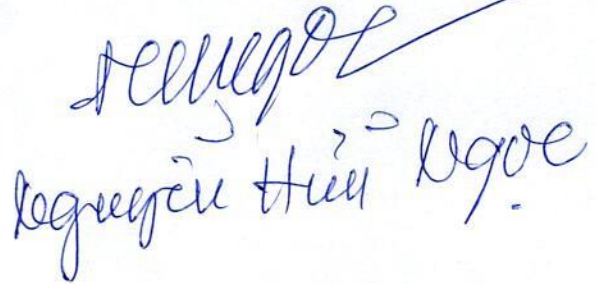 Nguyễn Hữu Ngọc